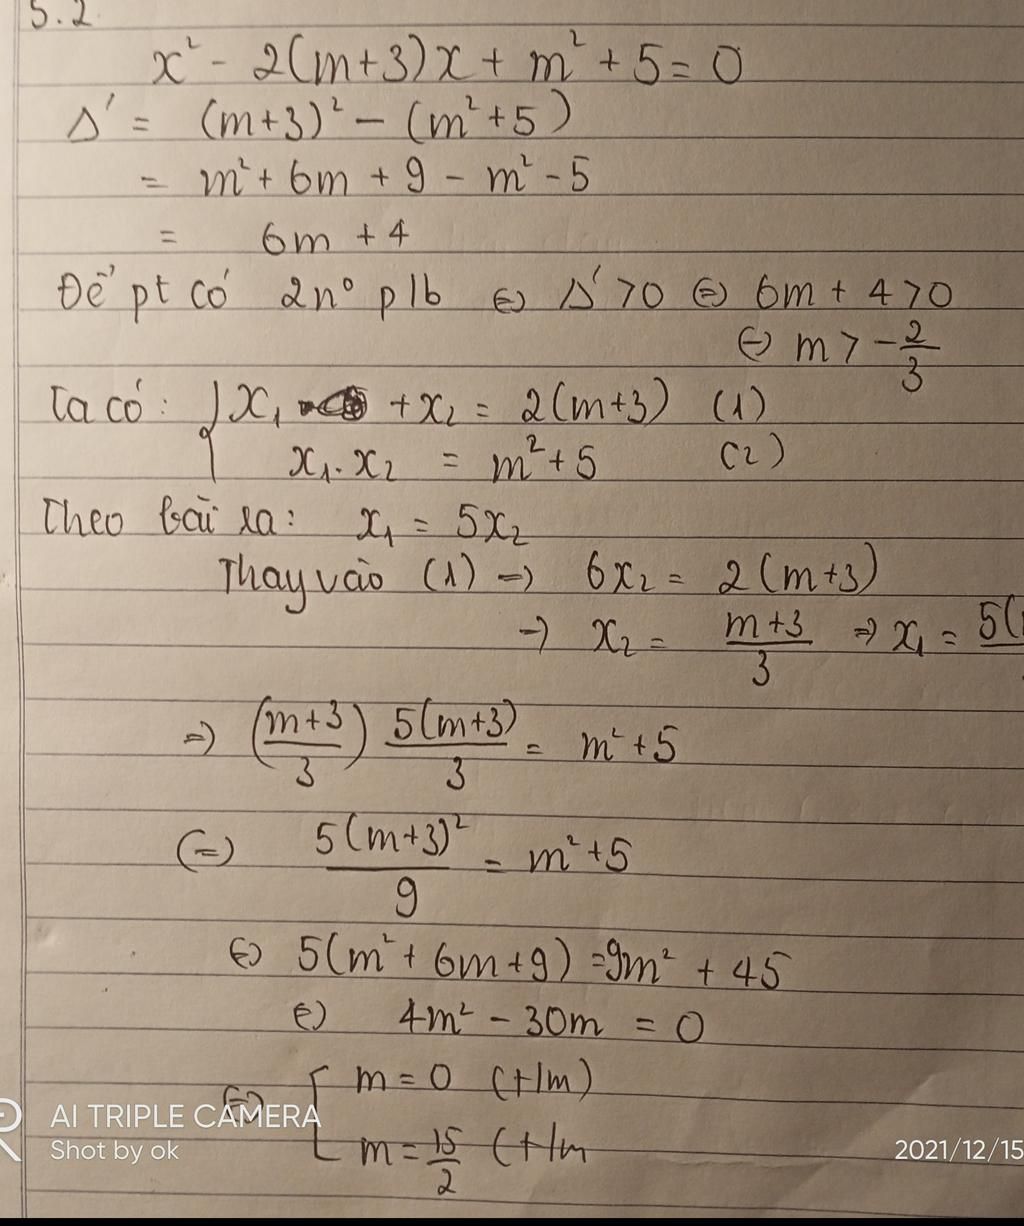 5.2
x² - 2(m+3)x + m² + 5 = 0
Δ' = (m+3)² - (m²+5)
= m² + 6m + 9 - m² - 5
= 6m + 4
Để pt có 2n⁰ plb ⇔ Δ' > 0 ⇔ 6m + 4 > 0
⇔ m > -2/3
Ta có: { x₁ + x₂ = 2(m+3) (1)
x₁. x₂ = m² + 5 (2)
Theo bài ra: x₁ = 5x₂
Thay vào (1) → 6x₂ = 2(m+3)
→ x₂ = (m+3)/3 ⇒ x₁ = 5(
⇒ ((m+3)/3) 5(m+3)/3 = m² + 5
(=) 5(m+3)²/9 = m² + 5
⇔ 5(m² + 6m + 9) = 9m² + 45
⇔ 4m² - 30m = 0
⇔ [ m = 0 (t/m)
m = 15/2 (t/m
AI TRIPLE CAMERA
Shot by ok
2021/12/15